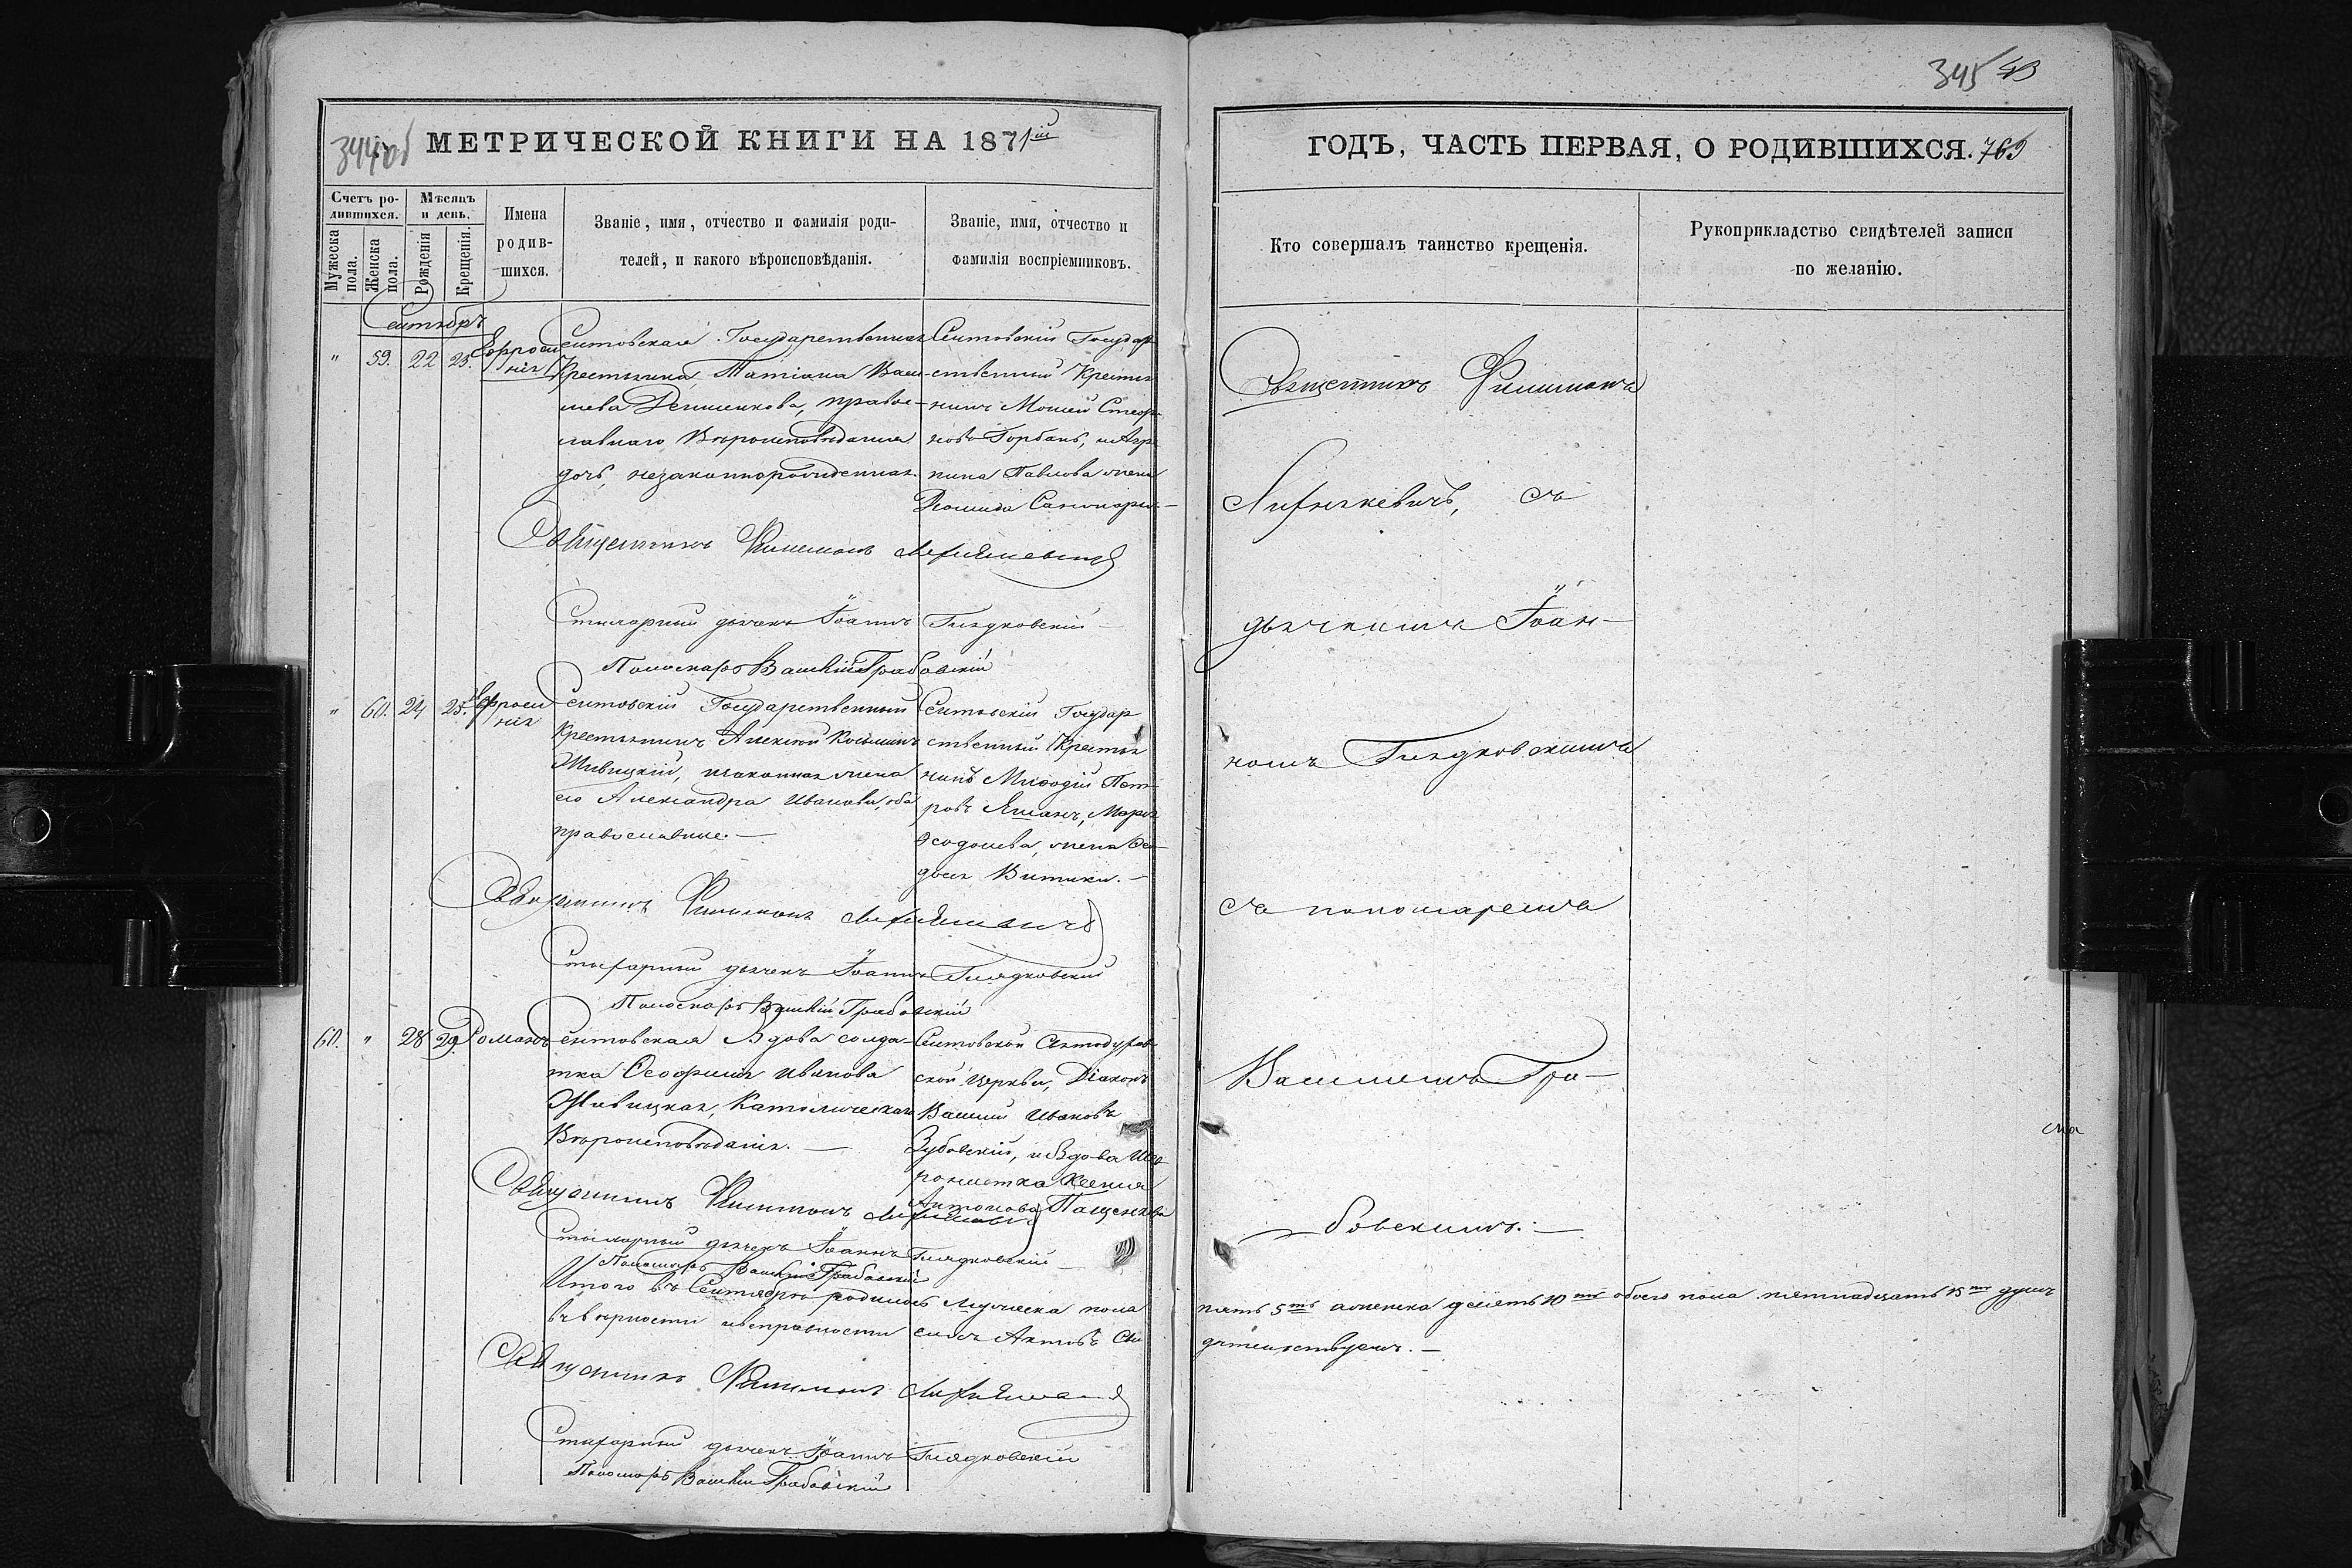 344 об
МЕТРИЧЕСКОЙ КНИГИ НА 1871й
Счетъ ро-
дившихся.
Мужеска
пола.
Женска
пола.
Мѣсяцъ
и день.
Рожденія
Крещенія.
Имена
родив-
шихся.
Званіе, имя, отчество и фамилія роди-
телей, и какого вѣроисповѣданія.
Званіе, имя, отчество и
фамилія воспріемниковъ.
Сентябрь
" 59. 22 25. Ефроси
нія
Сентовская Государственная
Крестьянка Татіана Васи-
лиева Денисенкова, правос-
лавнаго Вѣроисповѣданія
дочь, незаконнорожденная.
Сентовскій Государ
ственный Крестья
нинъ Моисей Стеф
новъ Горбань, и Агри
пина Павлова жена
Священникъ Филимонъ
дьячекъ Іоаннъ Гнядковскій
Пономарь Василій Грабовскій
" 60. 24 25. Ефроси
нія
Сентовскій Государственный
Крестьянинъ Алексей Косьминъ
Живицкій, изаконная жена
его Александра Иванова, оба
православные.
Сентовскій Государ
ственный Крестья
нинъ Мифодій Пет
ровъ
Феодосиева, жена Фео
Священникъ Филимонъ
дьячекъ Іоаннъ Гнядковскій
Пономарь Василій Грабовскій
60. " 28 29. Романъ
Сентовская Вдова солда-
тка Феофилія Иванова
Живицкая, Католическаго
Вѣроисповѣданія.
Сентовской
ской церкви, Діаконъ
Василій Ивановъ
Зубовскій, и Вдова
Ксенія
Антонова Пащенкова
Священникъ Филимонъ
дьячекъ Іоаннъ Гнядковскій
Пономарь Василій Грабовскій
Итого въ Сентябрѣ родилось Мужеска пола
въ вѣрности исправности сихъ Актовъ Сви
Священникъ Филимонъ
дьячекъ Іоаннъ Гнядковскій
Пономарь Василій Грабовскій
345
ГОДЪ, ЧАСТЬ ПЕРВАЯ, О РОДИВШИХСЯ. 765
Кто совершалъ таинство крещенія.
Рукоприкладство свидѣтелей записи
по желанію.
Священникъ Филимонъ
съ
дьячкомъ Іоан-
номъ Гнядковскимъ
съ пономаремъ
Василіемъ Гра-
бовскимъ.
пять 5ть аженска десять 10ть обоего пола пятнадцать 15ть душъ
дѣтельствуемъ.